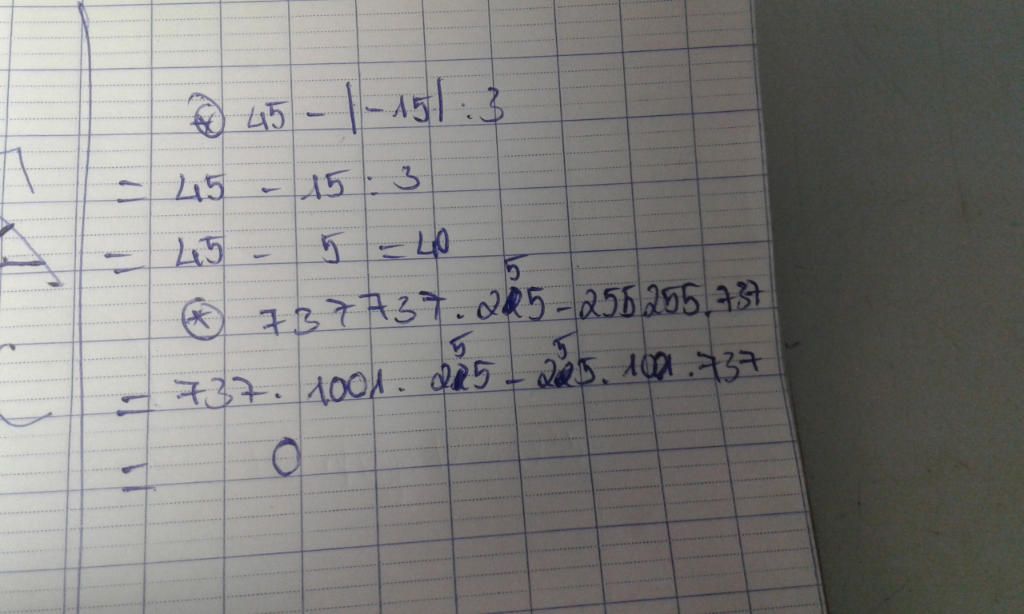 * 45 - |-15| : 3
= 45 - 15 : 3
= 45 - 5 = 40
* 737737 . 255 - 255255 . 737
= 737 . 1001 . 255 - 255 . 1001 . 737
= 0